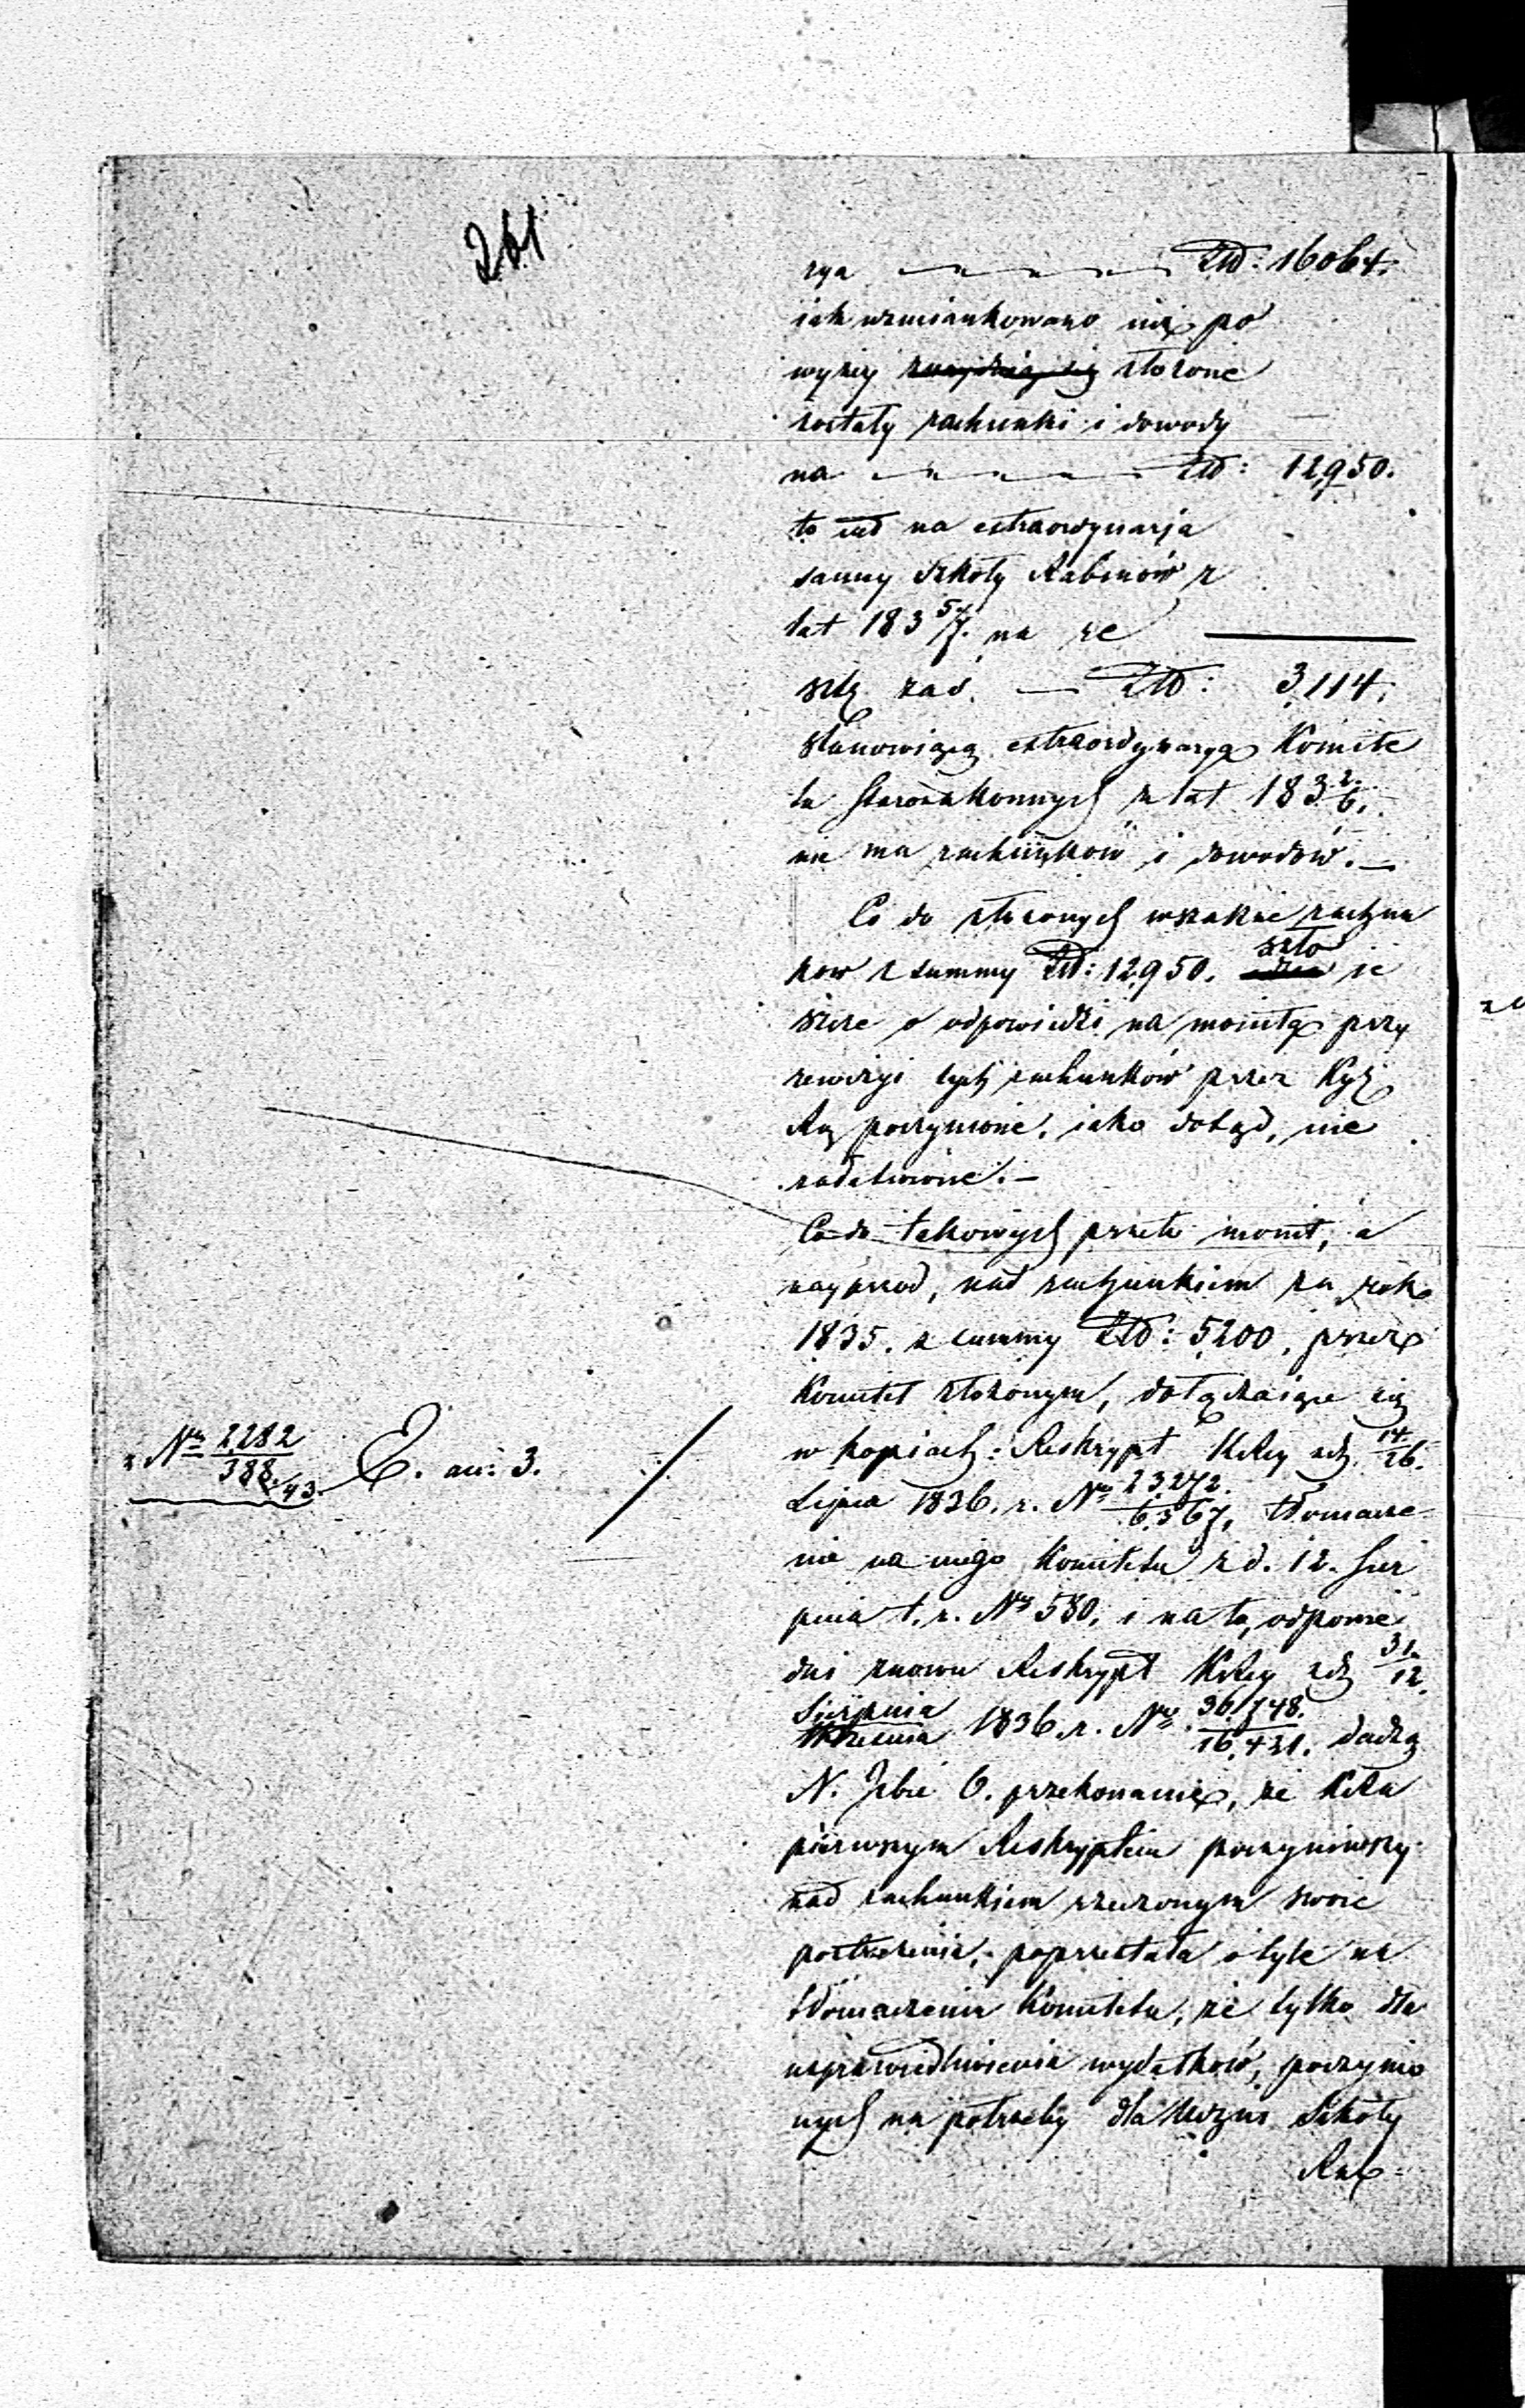 261
rya — — — — Złł: 16064.
iak wzmiankowano nie po
wyżey złożone
zostały rachunki i dowody
na — — — — Złł: 12,950.
to iest na extraordynarja
samey Szkoły Rabinów z
lat 183 5/7. na re
sztę zaś. — Złł: 3,114.
stanowiącą extraordynaryą Komite
tu Starozakonnych z lat 183 2/6.
nie ma rachunków i dowodów. —
Co do złożonych wszakże rachun
ków z summy Złł: 12,950. szło ie
szcze o odpowiedzi na monita przy
rewizyi tych rachunków przez
poczynione, iako dotąd, nie
załatwione. —
Co do takowych przeto monit, a
nayprzod, nad rachunkiem za rok
1835. z summy Złł: 5,200, przez
Komitet złożonym, dołączaiące się
w kopiach: Reskrypt KRzą zdz. 14/26.
Lipca 1836. r. Nr 23,272./6,367, tłomacze-
nie na niego Komitetu z d. 12. Sier
pnia t. r. Nr 580, i na to, odpowie
dni znowu Reskrypt KRzą zdz 31/12.
Sierpnia/Września 1836. r. Nr. 36,748./16,431. dadzą
N. Izbie O. przekonanie, że KRza
pierwszym Reskryptem poczyniwszy
nad rachunkiem rzeczonym swoie
postrzeżenia, poprzestała o tyle na
tłomaczeniu Komitetu, że tylko dla
usprawiedliwienia wydatków, poczynio
nych na potrzeby dla Uczniów Szkoły
Rab-
z Nr 2,282/388./43. E. au: 3.